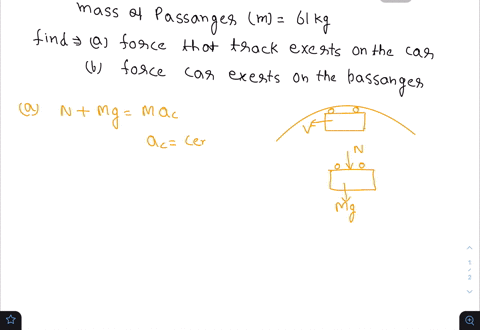 Mass of Passanger (m) = 61 kg
find ⇒ (a) force that track exerts on the car
(b) force car exerts on the passanger
(a) N + Mg = Mac
ac = cer
V
N
Mg